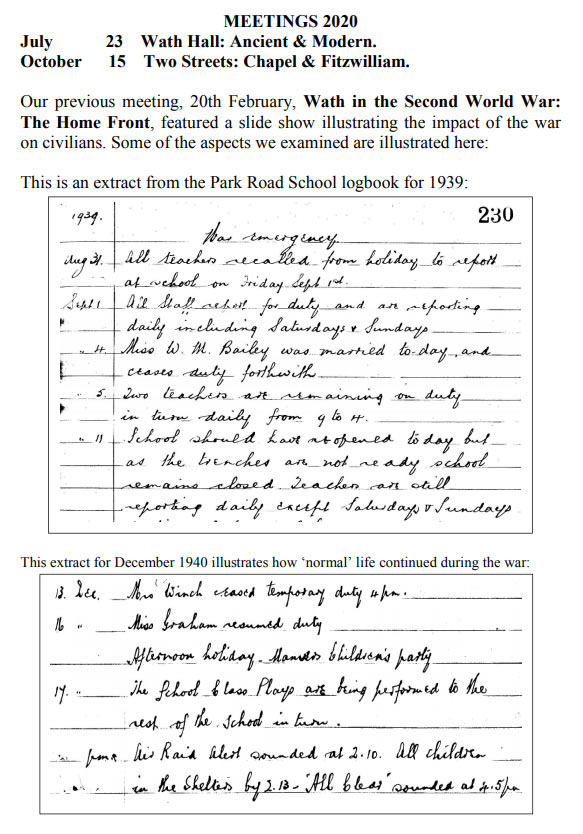 MEETINGS 2020
July 23 Wath Hall: Ancient & Modern.
October 15 Two Streets: Chapel & Fitzwilliam.
Our previous meeting, 20th February, Wath in the Second World War:
The Home Front, featured a slide show illustrating the impact of the war
on civilians. Some of the aspects we examined are illustrated here:
This is an extract from the Park Road School logbook for 1939:
1939. 230
War emergency
Aug 31. All teachers recalled from holiday to report
at school on Friday Sept 1st.
Sept 1 All Staff report for duty and are reporting
daily including Saturdays & Sundays
" 4. Miss W. M. Bailey was married to-day, and
ceases duty forthwith
" 5. Two teachers are remaining on duty
in turn daily from 9 to 4.
" 11 School should have reopened today but
as the trenches are not ready school
remains closed. Teachers are still
reporting daily except Saturdays & Sundays
This extract for December 1940 illustrates how ‘normal’ life continued during the war:
13. Dec. Mrs Winch ceased temporary duty 4pm.
16 " Miss Graham resumed duty
Afternoon holiday - Manvers Children's party
17. " The School Class Plays are being performed to the
rest of the School in turn.
Air Raid Alert sounded at 2.10. All children
in the Shelters by 2.13 - "All Clear" sounded at 4.5pm